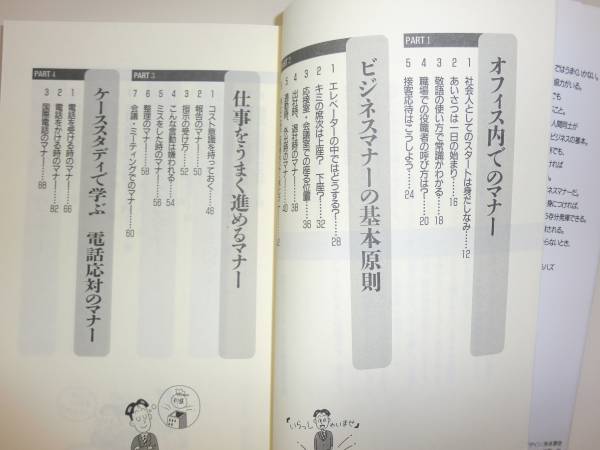 PART 1
オフィス内でのマナー
1 社会人としてのスタートは身だしなみ……12
2 あいさつは一日の始まり……16
3 敬語の使い方で常識がわかる……18
4 職場での役職者の呼び方は?……20
5 接客応待はこうしよう……24
ビジネスマナーの基本原則
1 エレベーターの中ではどうする?……28
2 キミの席次は上座? 下座?……32
3 応接室・会議室での座る位置……36
4 出社時、退社時のマナー……38
5 外出時のマナー……40
PART 3
仕事をうまく進めるマナー
1 コスト意識を持っておく……48
2 報告のマナー……50
3 指示の受け方……52
4 こんな言動は嫌われる……54
5 ミスをした時のマナー……56
6 整理のマナー……58
7 会議・ミーティングでのマナー……60
PART 4
ケーススタディで学ぶ 電話応対のマナー
1 電話を受ける時のマナー……66
2 電話をかける時のマナー……82
3 国際電話のマナー……88
ではうまくいかない。
人間同士が
ビジネスの基本。